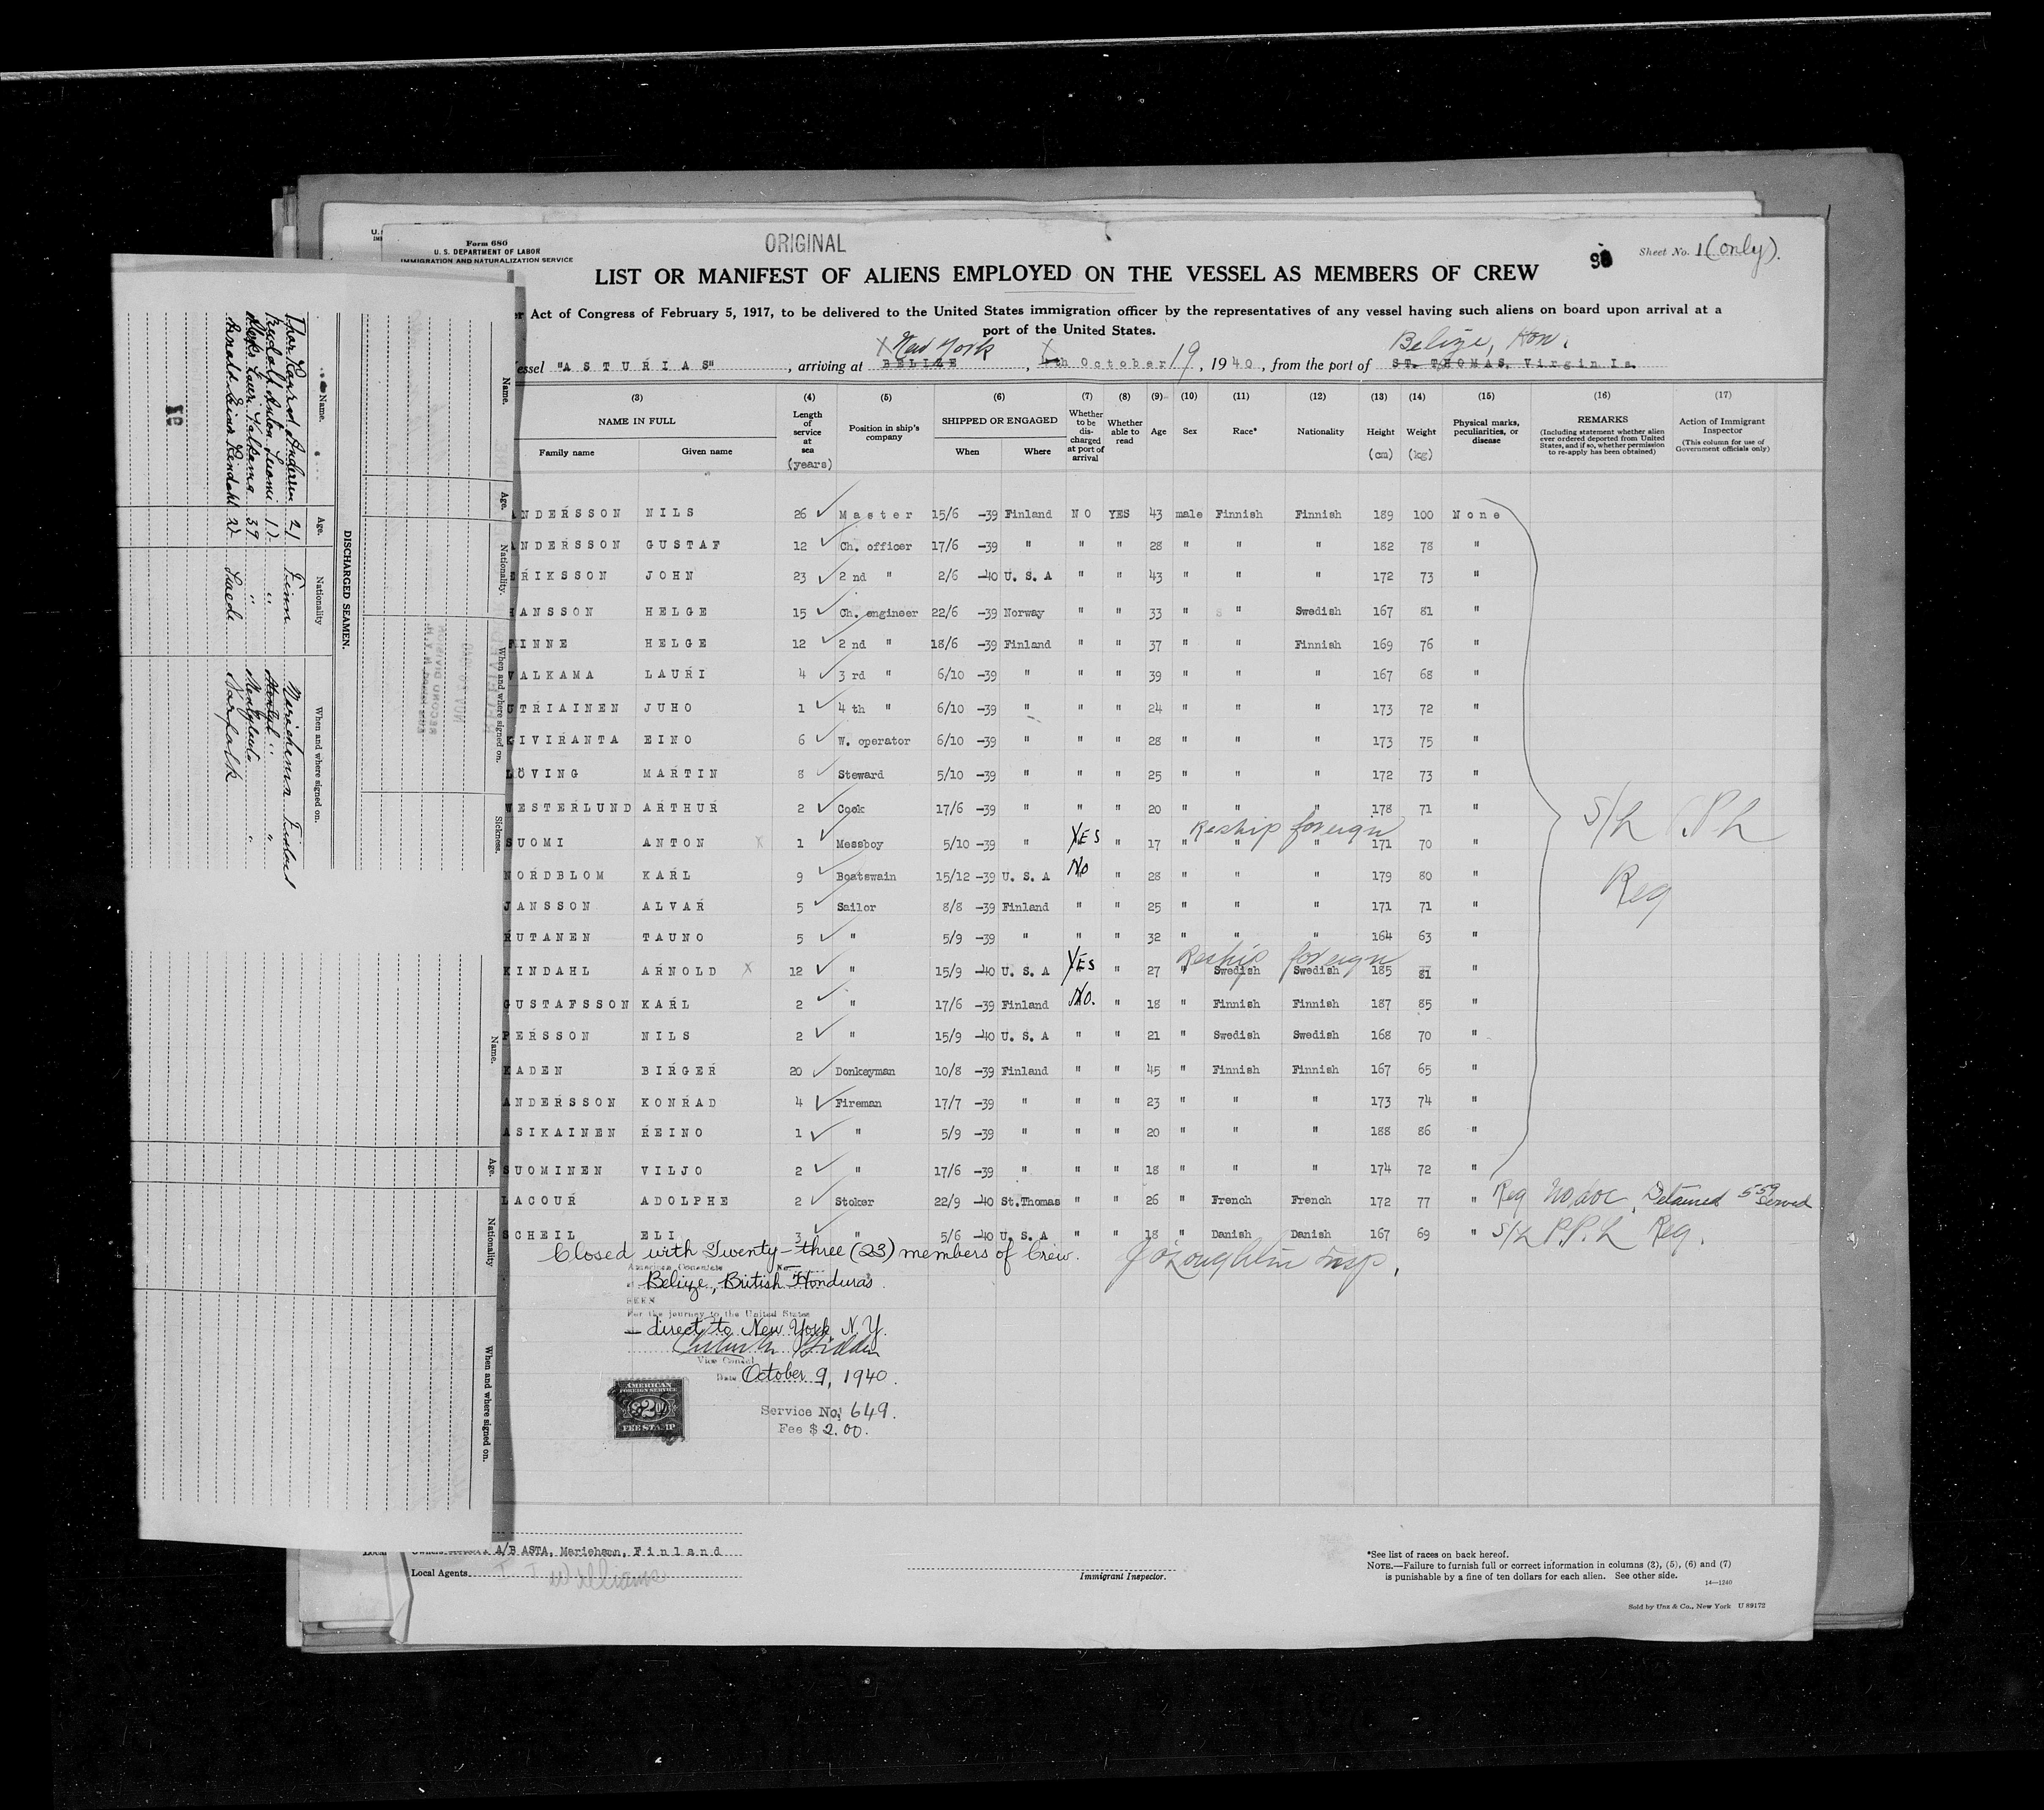 Form 680
U. S. DEPARTMENT OF LABOR
IMMIGRATION AND NATURALIZATION SERVICE
ORIGINAL
Sheet No. 1 (only).
LIST OR MANIFEST OF ALIENS EMPLOYED ON THE VESSEL AS MEMBERS OF CREW
Act of Congress of February 5, 1917, to be delivered to the United States immigration officer by the representatives of any vessel having such aliens on board upon arrival at a
port of the United States.
New York Belize, Hon.
essel "ASTURIAS", arriving at BELIZE, th October 19, 1940, from the port of ST. THOMAS, Virgin Is.
(3) (4) (5) (6) (7) (8) (9) (10) (11) (12) (13) (14) (15) (16) (17)
NAME IN FULL
Family name Given name
Length of service at sea (years)
Position in ship's company
SHIPPED OR ENGAGED
When Where
Whether to be discharged at port of arrival
Whether able to read
Age
Sex
Race*
Nationality
Height (cm)
Weight (kg)
Physical marks, peculiarities, or disease
REMARKS
(Including statement whether alien ever ordered deported from United States, and if so, whether permission to re-apply has been obtained)
Action of Immigrant Inspector
(This column for use of Government officials only)
ANDERSSON NILS 26 Master 15/6 -39 Finland NO YES 43 male Finnish Finnish 189 100 None
ANDERSSON GUSTAF 12 Ch. officer 17/6 -39 " " " 28 " " " 182 78 "
ERIKSSON JOHN 23 2nd " 2/6 -40 U. S. A " " 43 " " " 172 73 "
HANSSON HELGE 15 Ch. engineer 22/6 -39 Norway " " 33 " " Swedish 167 81 "
FINNE HELGE 12 2nd " 18/6 -39 Finland " " 37 " " Finnish 169 76 "
VALKAMA LAURI 4 3rd " 6/10 -39 " " " 39 " " " 167 68 "
UTRIAINEN JUHO 1 4th " 6/10 -39 " " " 24 " " " 173 72 "
KIVIRANTA EINO 6 W. operator 6/10 -39 " " " 28 " " " 173 75 "
LÖVING MARTIN 8 Steward 5/10 -39 " " " 25 " " " 172 73 "
WESTERLUND ARTHUR 2 Cook 17/6 -39 " " " 20 " " " 178 71 "
Reship foreign
SUOMI ANTON X 1 Messboy 5/10 -39 " YES " 17 " " " 171 70 "
NORDBLOM KARL 9 Boatswain 15/12 -39 U. S. A NO " 28 " " " 179 80 "
JANSSON ALVAR 5 Sailor 8/8 -39 Finland " " 25 " " " 171 71 "
RUTANEN TAUNO 5 " 5/9 -39 " " " 32 " " " 164 63 "
Reship foreign
KINDAHL ARNOLD X 12 " 15/9 -40 U. S. A YES " 27 " Swedish Swedish 185 81 "
GUSTAFSSON KARL 2 " 17/6 -39 Finland No. " 18 " Finnish Finnish 187 85 "
PERSSON NILS 2 " 15/9 -40 U. S. A " " 21 " Swedish Swedish 168 70 "
KADEN BIRGER 20 Donkeyman 10/8 -39 Finland " " 45 " Finnish Finnish 167 65 "
ANDERSSON KONRAD 4 Fireman 17/7 -39 " " " 23 " " " 173 74 "
ASIKAINEN REINO 1 " 5/9 -39 " " " 20 " " " 188 86 "
SUOMINEN VILJO 2 " 17/6 -39 " " " 18 " " " 174 72 "
LACOUR ADOLPHE 2 Stoker 22/9 -40 St.Thomas " " 26 " French French 172 77 " Req No doc. Detained 559 Served
SCHEIL ELI 3 " 5/6 -40 U. S. A " " 18 " Danish Danish 167 69 " S/L P.P.L Req.
Req
Closed with Twenty-three (23) members of Crew.
American Consulate No.
Belize, British Honduras
SEEN
For the journey to the United States
direct to New York, N.Y.
Vice Consul
Date October 9, 1940.
AMERICAN
FOREIGN SERVICE
FEE STAMP
Service No. 649.
Fee $ 2.00.
A/B ASTA, Mariehamn, Finland
Local Agents Williams
Immigrant Inspector.
*See list of races on back hereof.
NOTE.—Failure to furnish full or correct information in columns (3), (5), (6) and (7)
is punishable by a fine of ten dollars for each alien. See other side.
14—1240
Sold by Unz & Co., New York U 89172
DISCHARGED SEAMEN.
Name. Age. Nationality When and where signed on.
21 Finn
17 "
39 " "
Norfolk
Name. Age. Nationality. When and where signed on. Sickness.
Name. Age. Nationality When and where signed on.